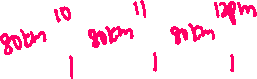 80km 10 80km 11 80km 12pm